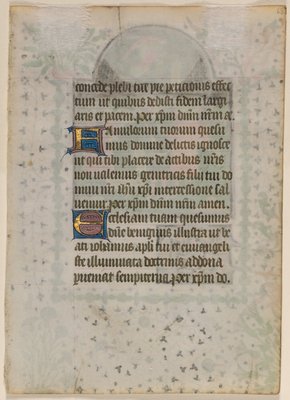 concede plebi tue pie peticionis effec
tum ut quibus dedisti fidem largi
aris et pacem. Per xp̄m dn̄m nr̄m ā.
Famulorum tuorum quesu
mus domine delictis ignosce
ut qui tibi placere de actibus nr̄is
non ualemus genitricis filii tui do
mini nr̄i ih̄u xp̄i intercessione sal
uemur Per xp̄m dn̄m nr̄m amen.
Ecclesiam tuam quesumus
dn̄e benignus illustra ut be
ati iohannis apl̄i tui et euuangeli
ste illuminata doctrinis ad dona
pueniat sempiterna Per xp̄m do.